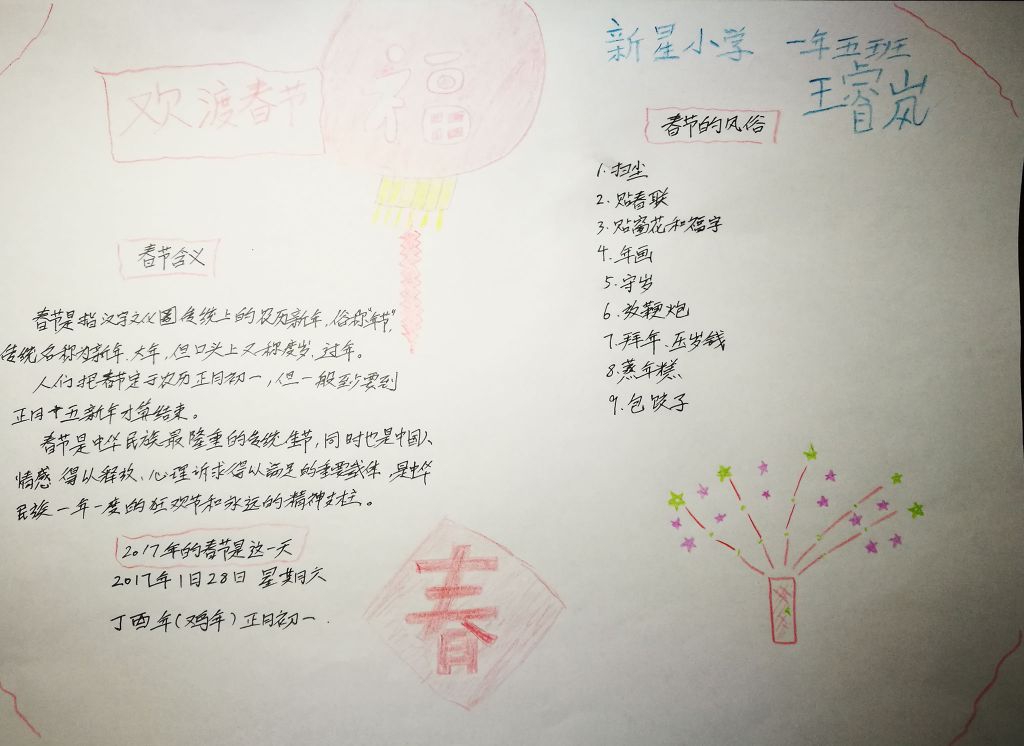 欢渡春节
福
新星小学 一年五班
王睿岚
春节的风俗
1.扫尘
2.贴春联
3.贴窗花和福字
4.年画
5.守岁
6.放鞭炮
7.拜年、压岁钱
8.蒸年糕
9.包饺子
春节含义
春节是指汉字文化圈传统上的农历新年,俗称“年节”,
传统名称为新年、大年,但口头上又称度岁、过年。
人们把春节定于农历正月初一,但一般至少要到
正月十五新年才算结束。
春节是中华民族最隆重的传统佳节,同时也是中国人
情感得以释放、心理诉求得以满足的重要载体,是中华
民族一年一度的狂欢节和永远的精神支柱。
2017年的春节是这一天
2017年1月28日 星期六
丁酉年(鸡年)正月初一.
春